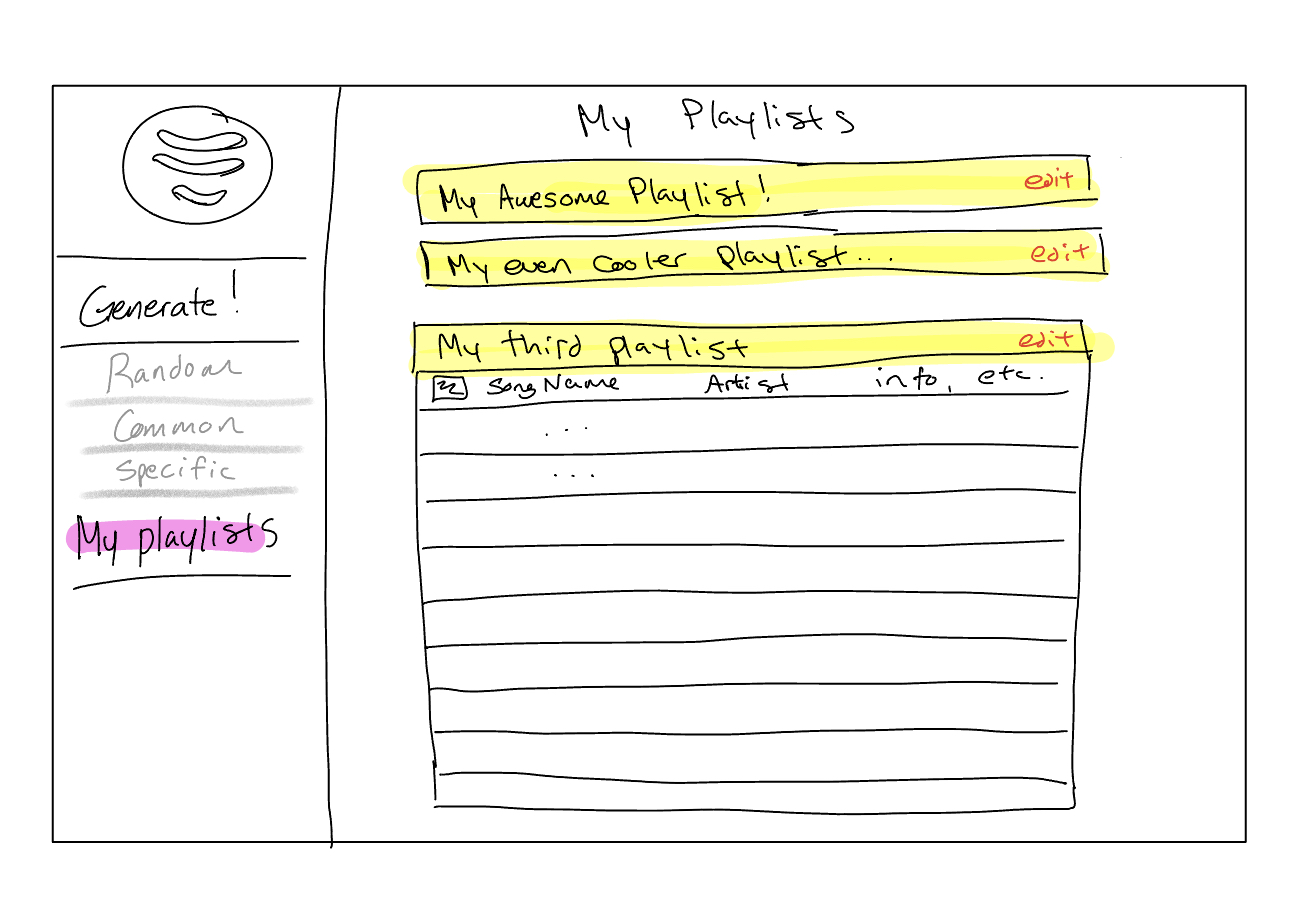 Generate!
Random
Common
Specific
My playlists
My Playlists
My Awesome Playlist! edit
My even cooler playlist... edit
My third playlist edit
Song Name Artist info, etc.
...
...